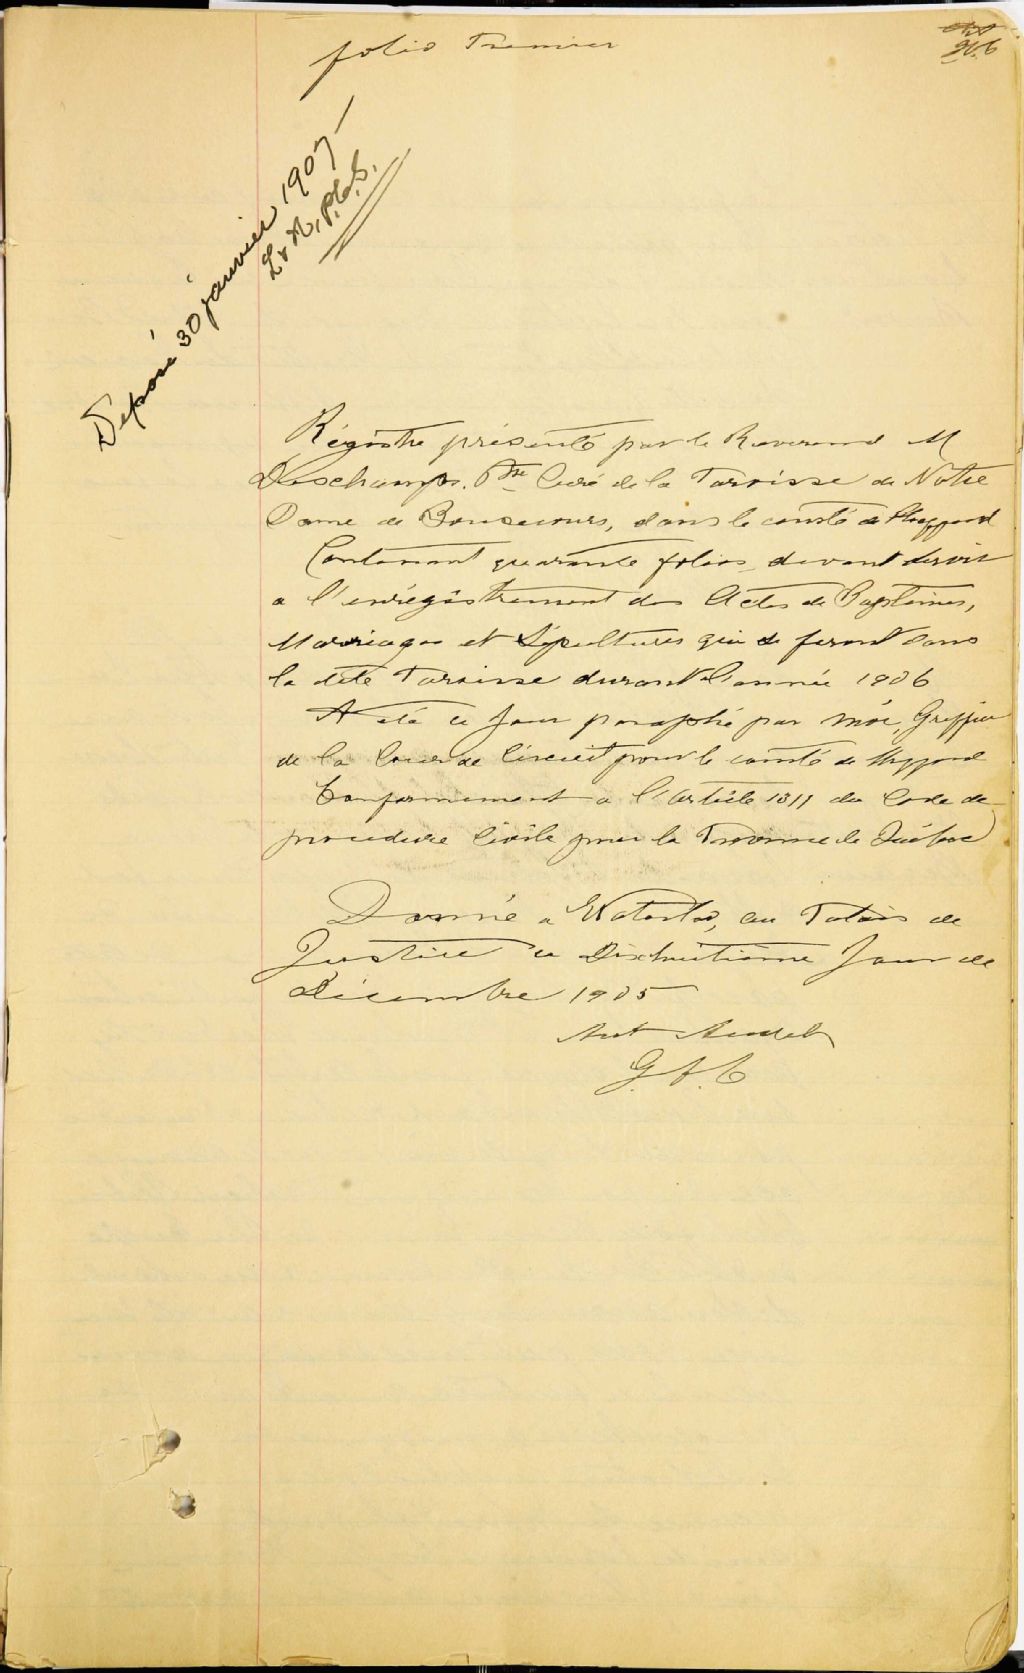 folio Premier
Déposé 30 janvier 1907 —
L & N, P.C.S.
Régistre présenté par le Reverend M
Deschamps. Ptre Curé de la Paroisse de Notre
Dame de Bonsecours, dans le comté de Shefford
Contenant quarante folios, devant servir
a l'enrégistrement des Actes de Baptêmes,
Marriages et Sépultures qui se feront dans
la dite Paroisse durant l'année 1906
A été ce Jour paraphé par moi, Greffier
de la Cour de Circuit pour le comté de Shefford
Conformement a l'Article 1311 du Code de
procedure Civile pour la Province de Québec
Donné a Waterloo, au Palais de
Justice ce Dixhuitième Jour de
Décembre 1905
G.C.C